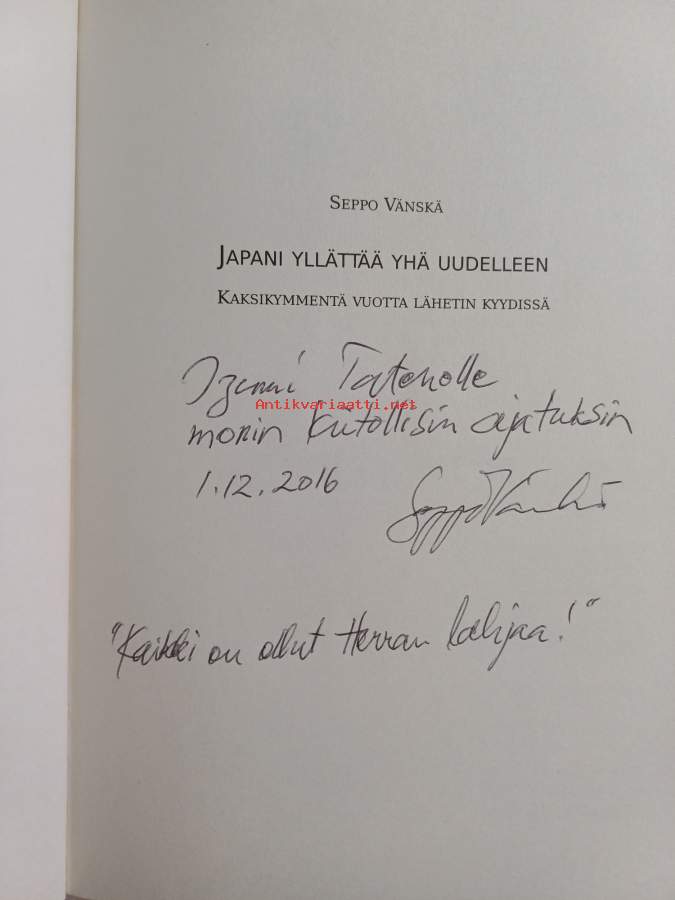 SEPPO VÄNSKÄ
JAPANI YLLÄTTÄÄ YHÄ UUDELLEEN
KAKSIKYMMENTÄ VUOTTA LÄHETIN KYYDISSÄ
Izumi Tatenolle
Antikvariaatti.net
monin kiitollisin ajatuksin
1.12.2016
Seppo Vänskä
"Kaikki on ollut Herran lahjaa!"